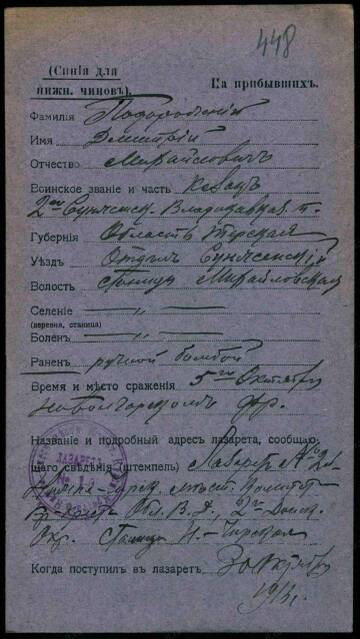 448
(Синія для
нижн. чиновъ).
На прибывшихъ.
Фамилія
Имя Дмитрій
Отчество Михайловичъ
Воинское званіе и часть Казакъ
2го Сунженск. Владикавказ. п.
Губернія Область Терская
Уѣздъ Отдѣлъ Сунженскій
Волость станица Михайловская
Селеніе
(деревня, станица)
Боленъ
Раненъ ручной бомбой
Время и мѣсто сраженія 5го Октября
фр.
Названіе и подробный адресъ лазарета, сообщаю-
щаго свѣдѣнія (штемпель) Лазаретъ № 2й
ЛАЗАРЕТЪ
Комитет
Обл. В. Д., 2й Донск.
Окр. Станица Н.-Чирская
Когда поступилъ въ лазаретъ 30 Октября